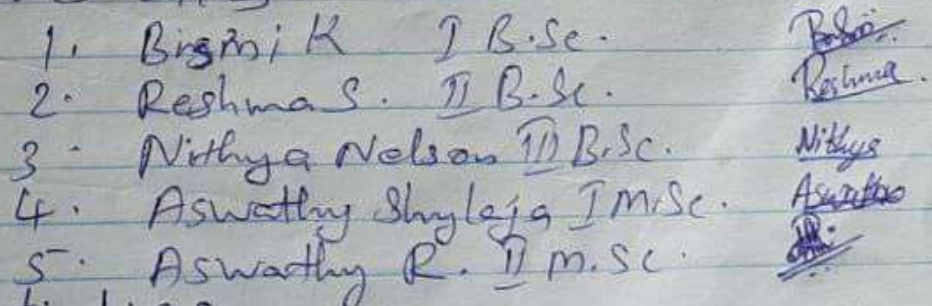 1. Bismi K I B.Sc.
2. Reshma S. II B.Sc. Reshma.
3. Nithya Nelson III B.Sc. Nithya
4. Aswathy Shylaja I M.Sc. Aswathy
5. Aswathy R. II M.Sc.